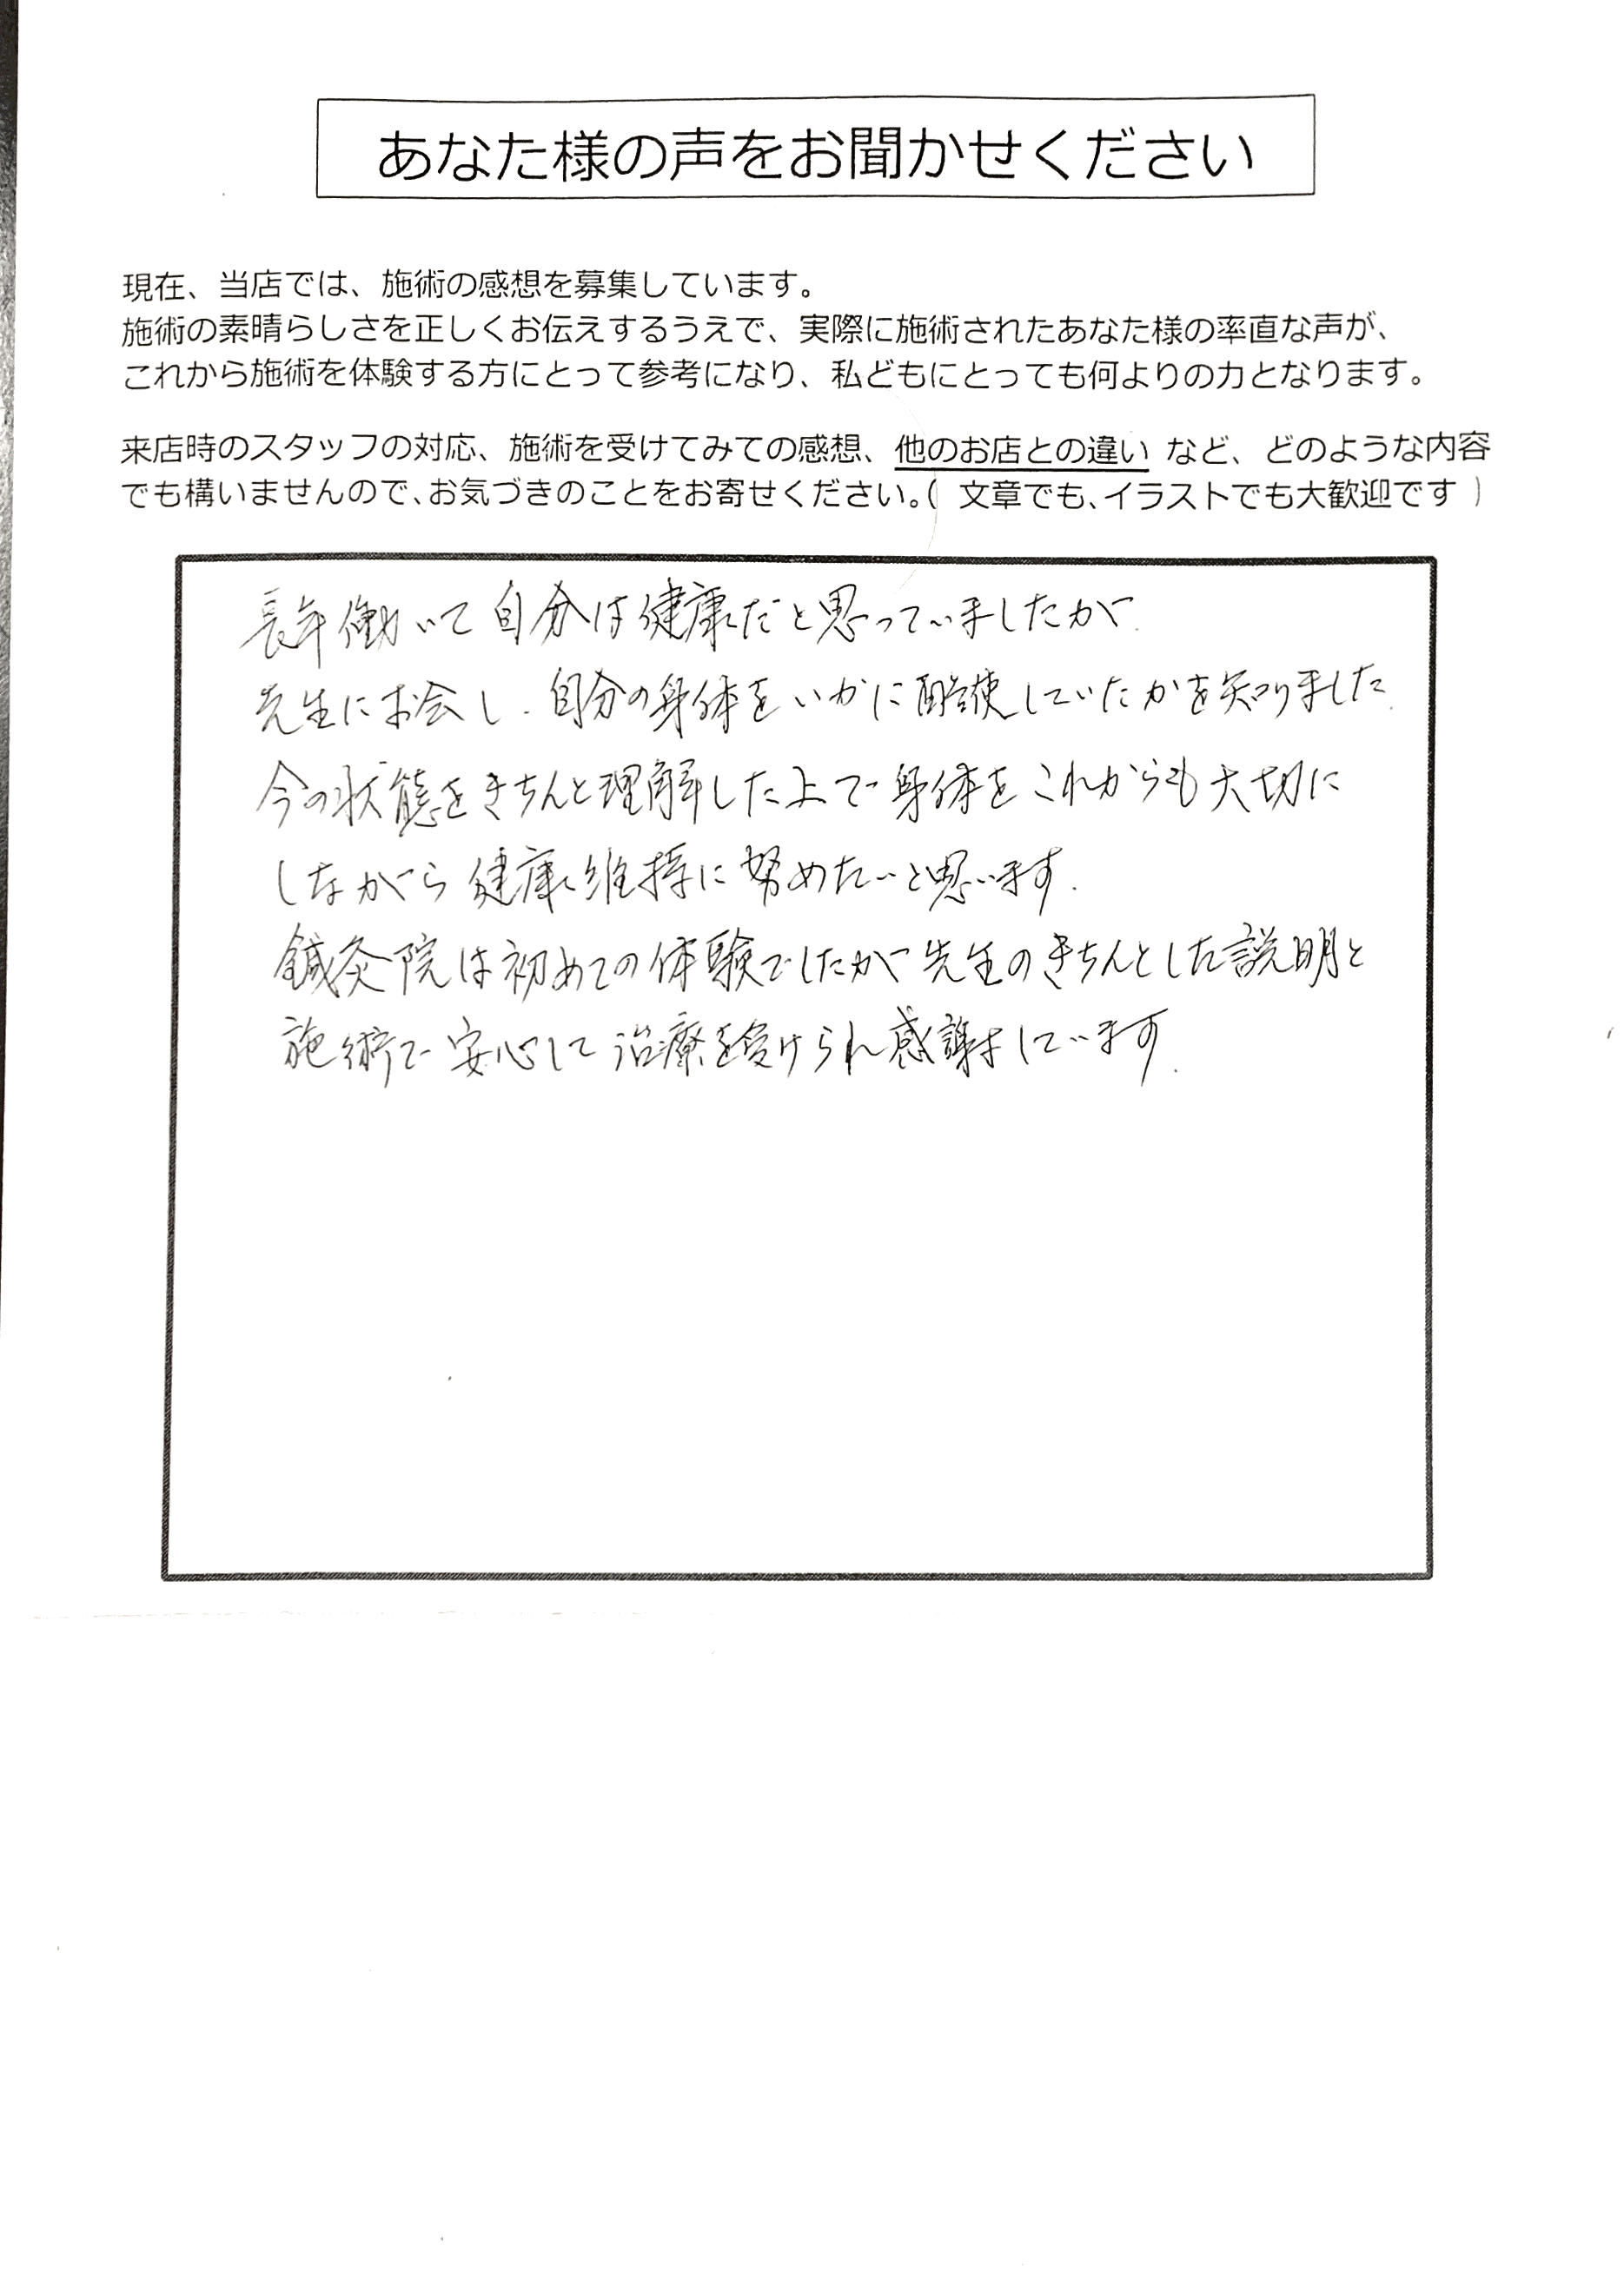 あなた様の声をお聞かせください
現在、当店では、施術の感想を募集しています。
施術の素晴らしさを正しくお伝えするうえで、実際に施術されたあなた様の率直な声が、
これから施術を体験する方にとって参考になり、私どもにとっても何よりの力となります。
来店時のスタッフの対応、施術を受けてみての感想、他のお店との違い など、どのような内容
でも構いませんので、お気づきのことをお寄せください。( 文章でも、イラストでも大歓迎です )
長年働いて自分は健康だと思っていましたが
先生にお会し、自分の身体をいかに酷使していたかを知りました.
今の状態をきちんと理解した上で身体をこれからも大切に
しながら健康維持に努めたいと思います.
鍼灸院は初めての体験でしたが先生のきちんとした説明と
施術で安心して治療を受けられ感謝しています.